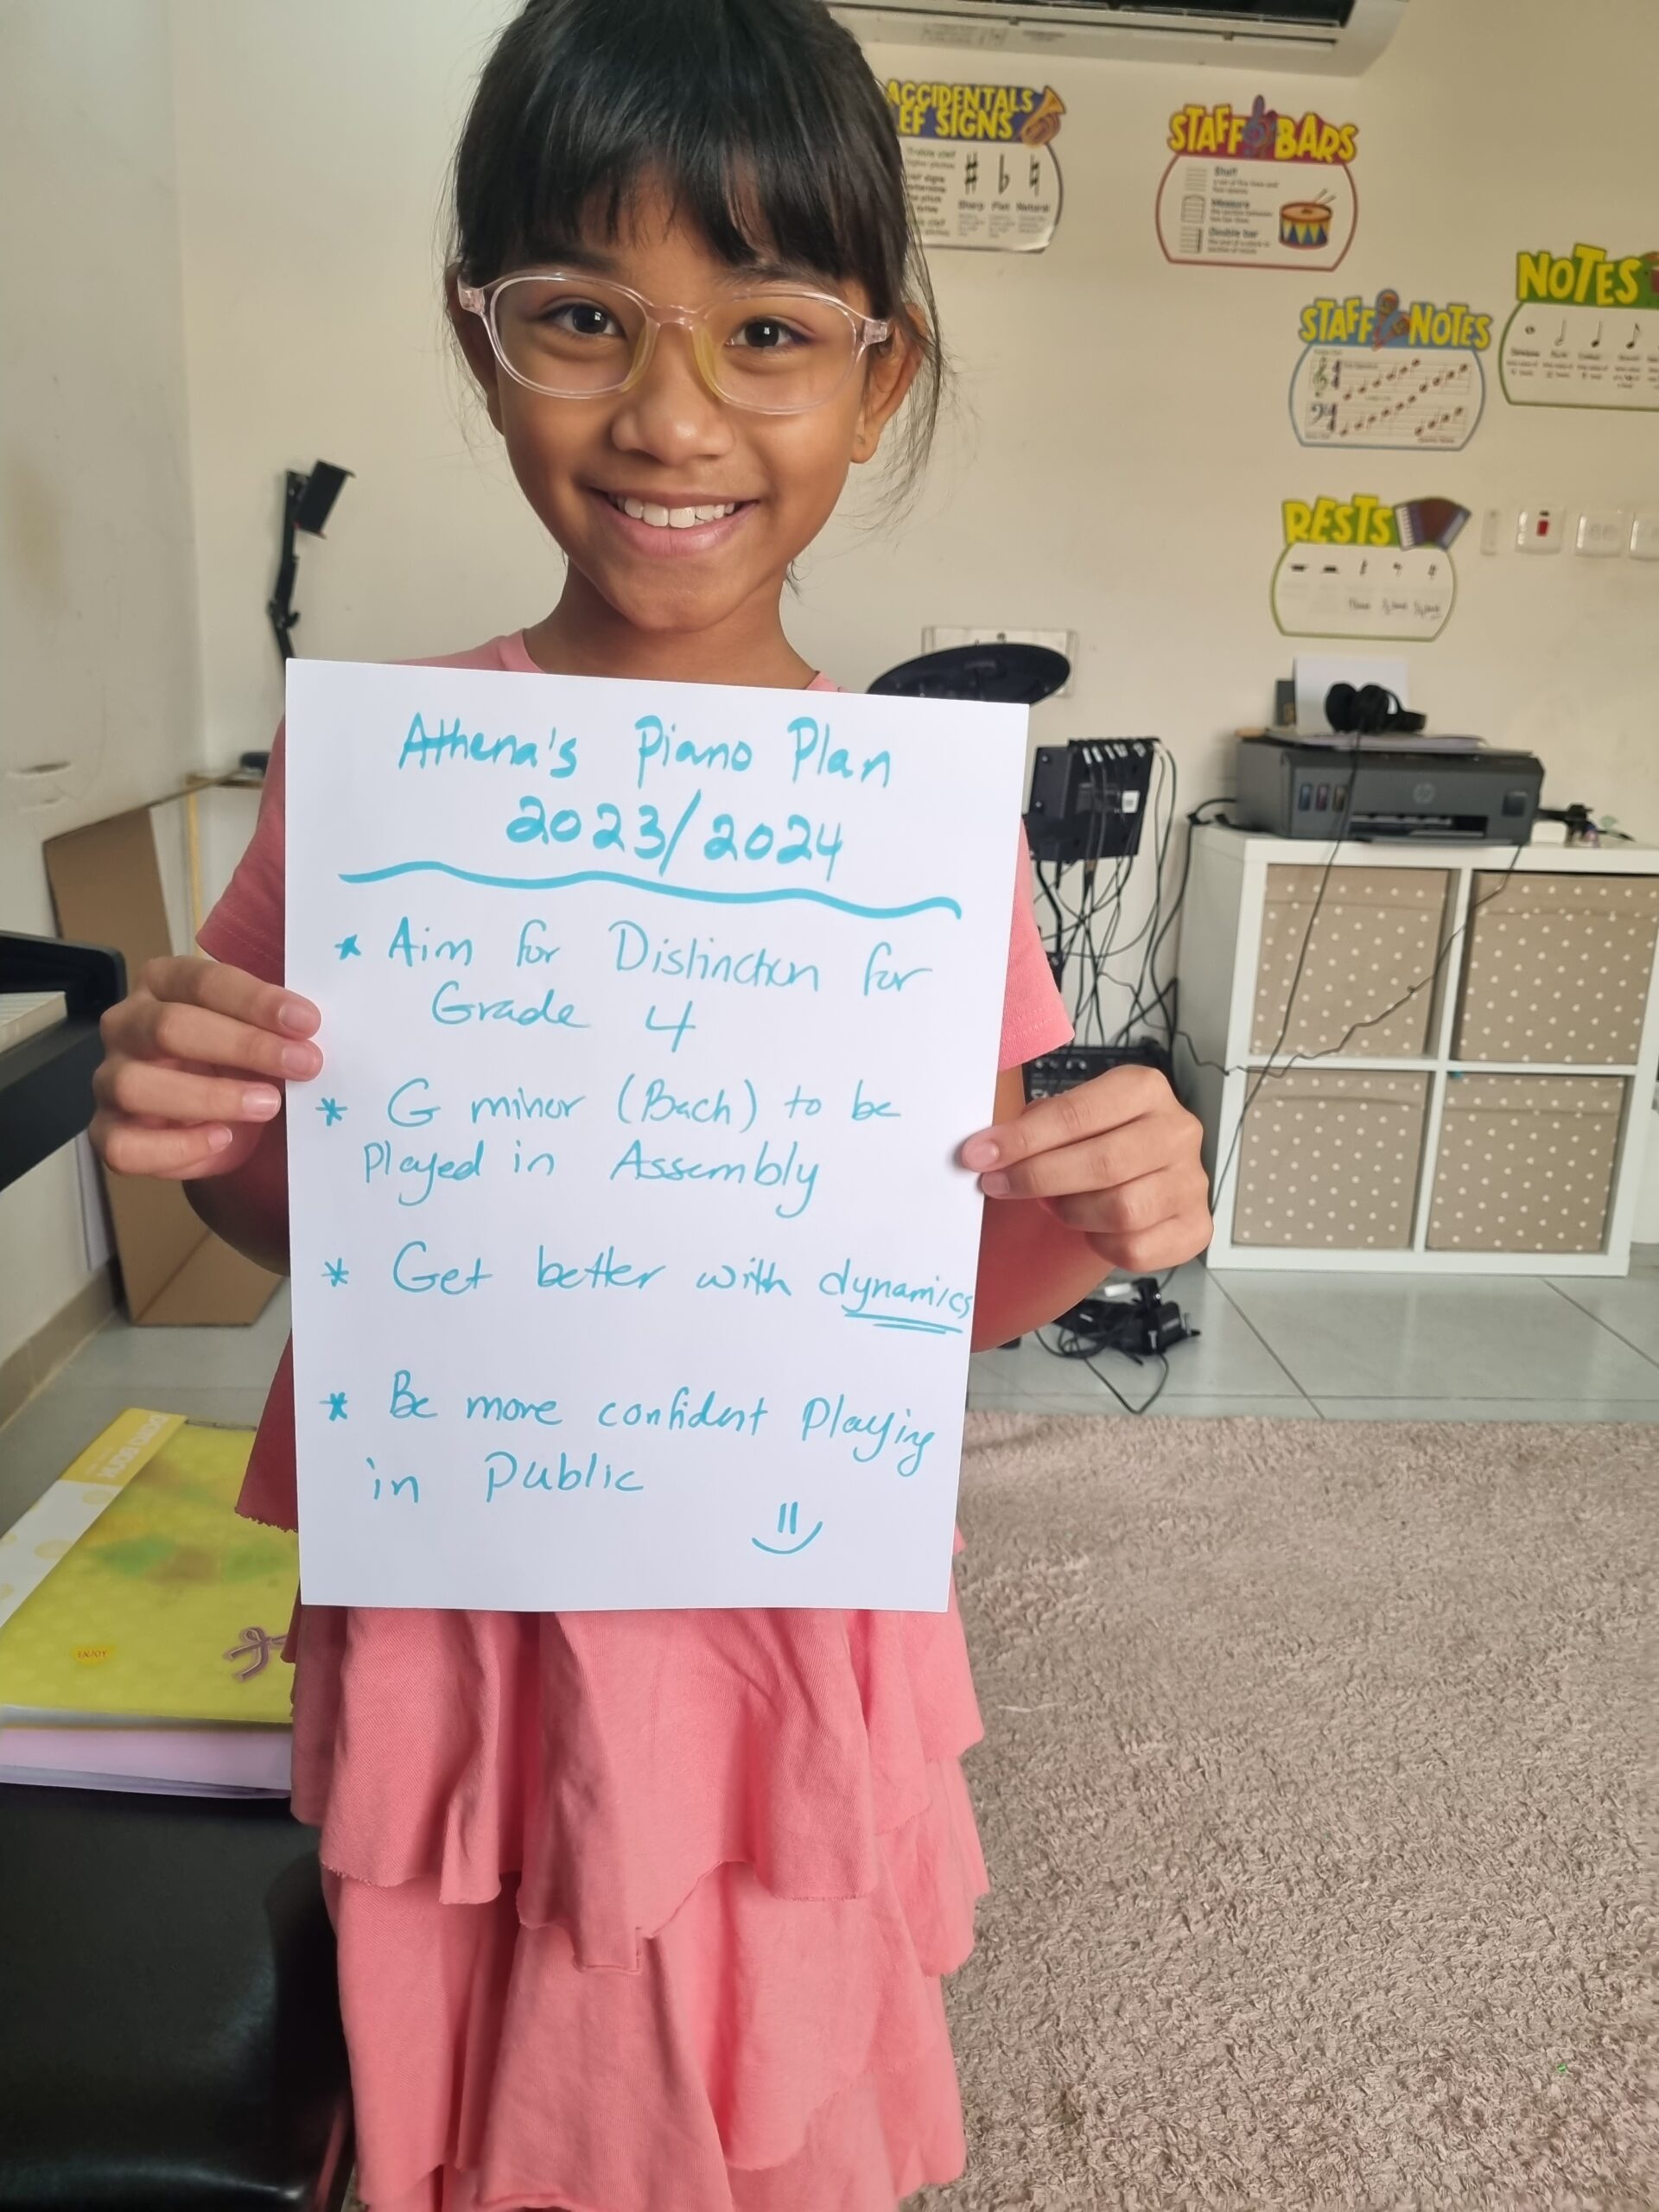 Athena's Piano Plan
2023/2024
* Aim for Distinction for
Grade 4
* G minor (Bach) to be
Played in Assembly
* Get better with dynamics
* Be more confident Playing
in Public
ACCIDENTALS
EF SIGNS
Sharp Flat Natural
STAFF BARS
Staff
Measure
Double bar
STAFF NOTES
NOTES
RESTS
hp
ENJOY